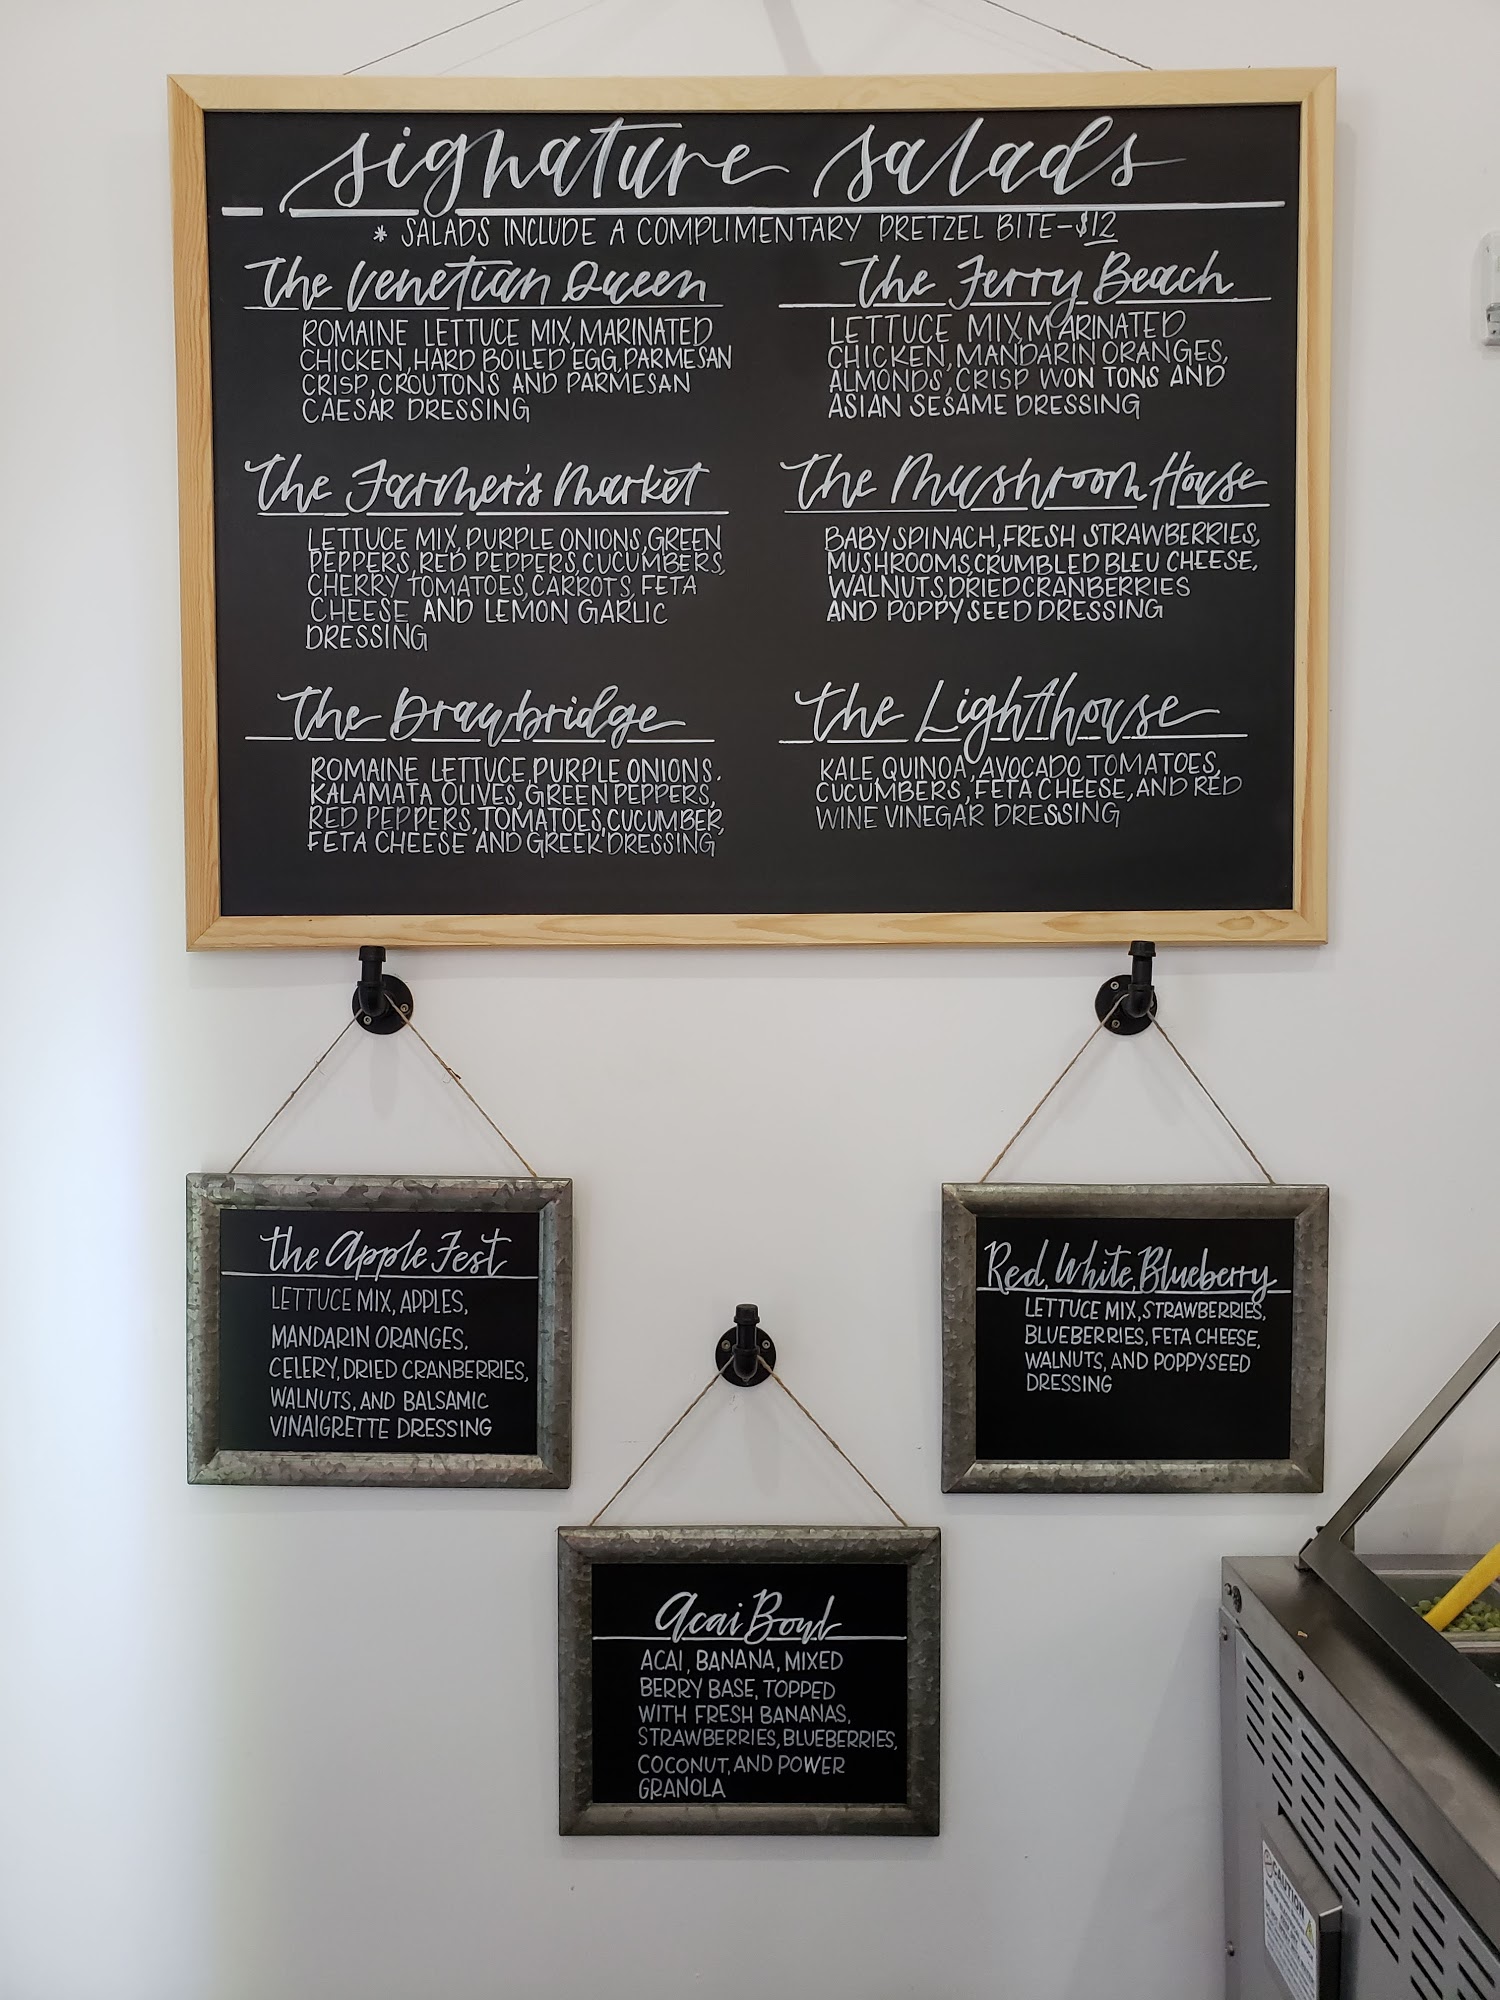 signature salads
* SALADS INCLUDE A COMPLIMENTARY PRETZEL BITE-$12
The Venetian Queen
ROMAINE LETTUCE MIX, MARINATED
CHICKEN, HARD BOILED EGG, PARMESAN
CRISP, CROUTONS AND PARMESAN
CAESAR DRESSING
The Ferry Beach
LETTUCE MIX, MARINATED
CHICKEN, MANDARIN ORANGES,
ALMONDS, CRISP WON TONS AND
ASIAN SESAME DRESSING
The Farmer's Market
LETTUCE MIX, PURPLE ONIONS, GREEN
PEPPERS, RED PEPPERS, CUCUMBERS,
CHERRY TOMATOES, CARROTS, FETA
CHEESE AND LEMON GARLIC
DRESSING
The Mushroom House
BABY SPINACH, FRESH STRAWBERRIES,
MUSHROOMS, CRUMBLED BLEU CHEESE,
WALNUTS, DRIED CRANBERRIES
AND POPPYSEED DRESSING
The Drawbridge
ROMAINE LETTUCE, PURPLE ONIONS.
KALAMATA OLIVES, GREEN PEPPERS,
RED PEPPERS, TOMATOES, CUCUMBER,
FETA CHEESE AND GREEK DRESSING
The Lighthouse
KALE, QUINOA, AVOCADO, TOMATOES,
CUCUMBERS, FETA CHEESE, AND RED
WINE VINEGAR DRESSING
the Apple Fest
LETTUCE MIX, APPLES,
MANDARIN ORANGES,
CELERY, DRIED CRANBERRIES,
WALNUTS, AND BALSAMIC
VINAIGRETTE DRESSING
Red, White, Blueberry
LETTUCE MIX, STRAWBERRIES,
BLUEBERRIES, FETA CHEESE,
WALNUTS, AND POPPYSEED
DRESSING
Acai Bowl
ACAI, BANANA, MIXED
BERRY BASE, TOPPED
WITH FRESH BANANAS,
STRAWBERRIES, BLUEBERRIES,
COCONUT, AND POWER
GRANOLA
CAUTION